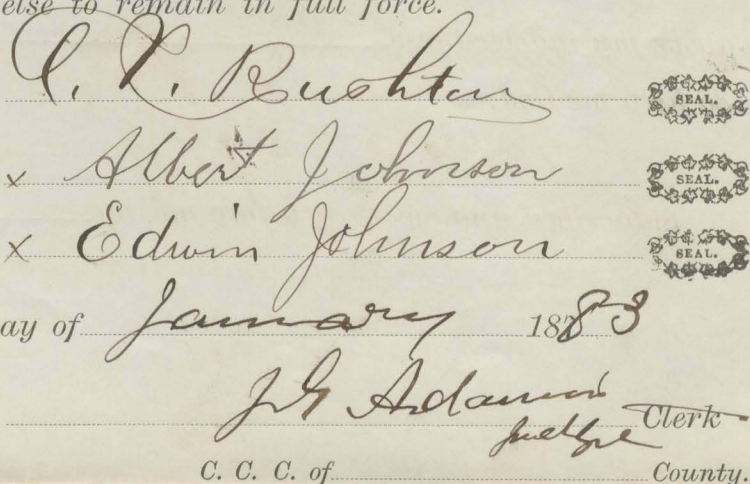 else to remain in full force.
C. X. Rushton SEAL.
x Albert Johnson SEAL.
x Edwin Johnson SEAL.
ay of January 1883
J G Adams Clerk
Judge
C. C. C. of County.